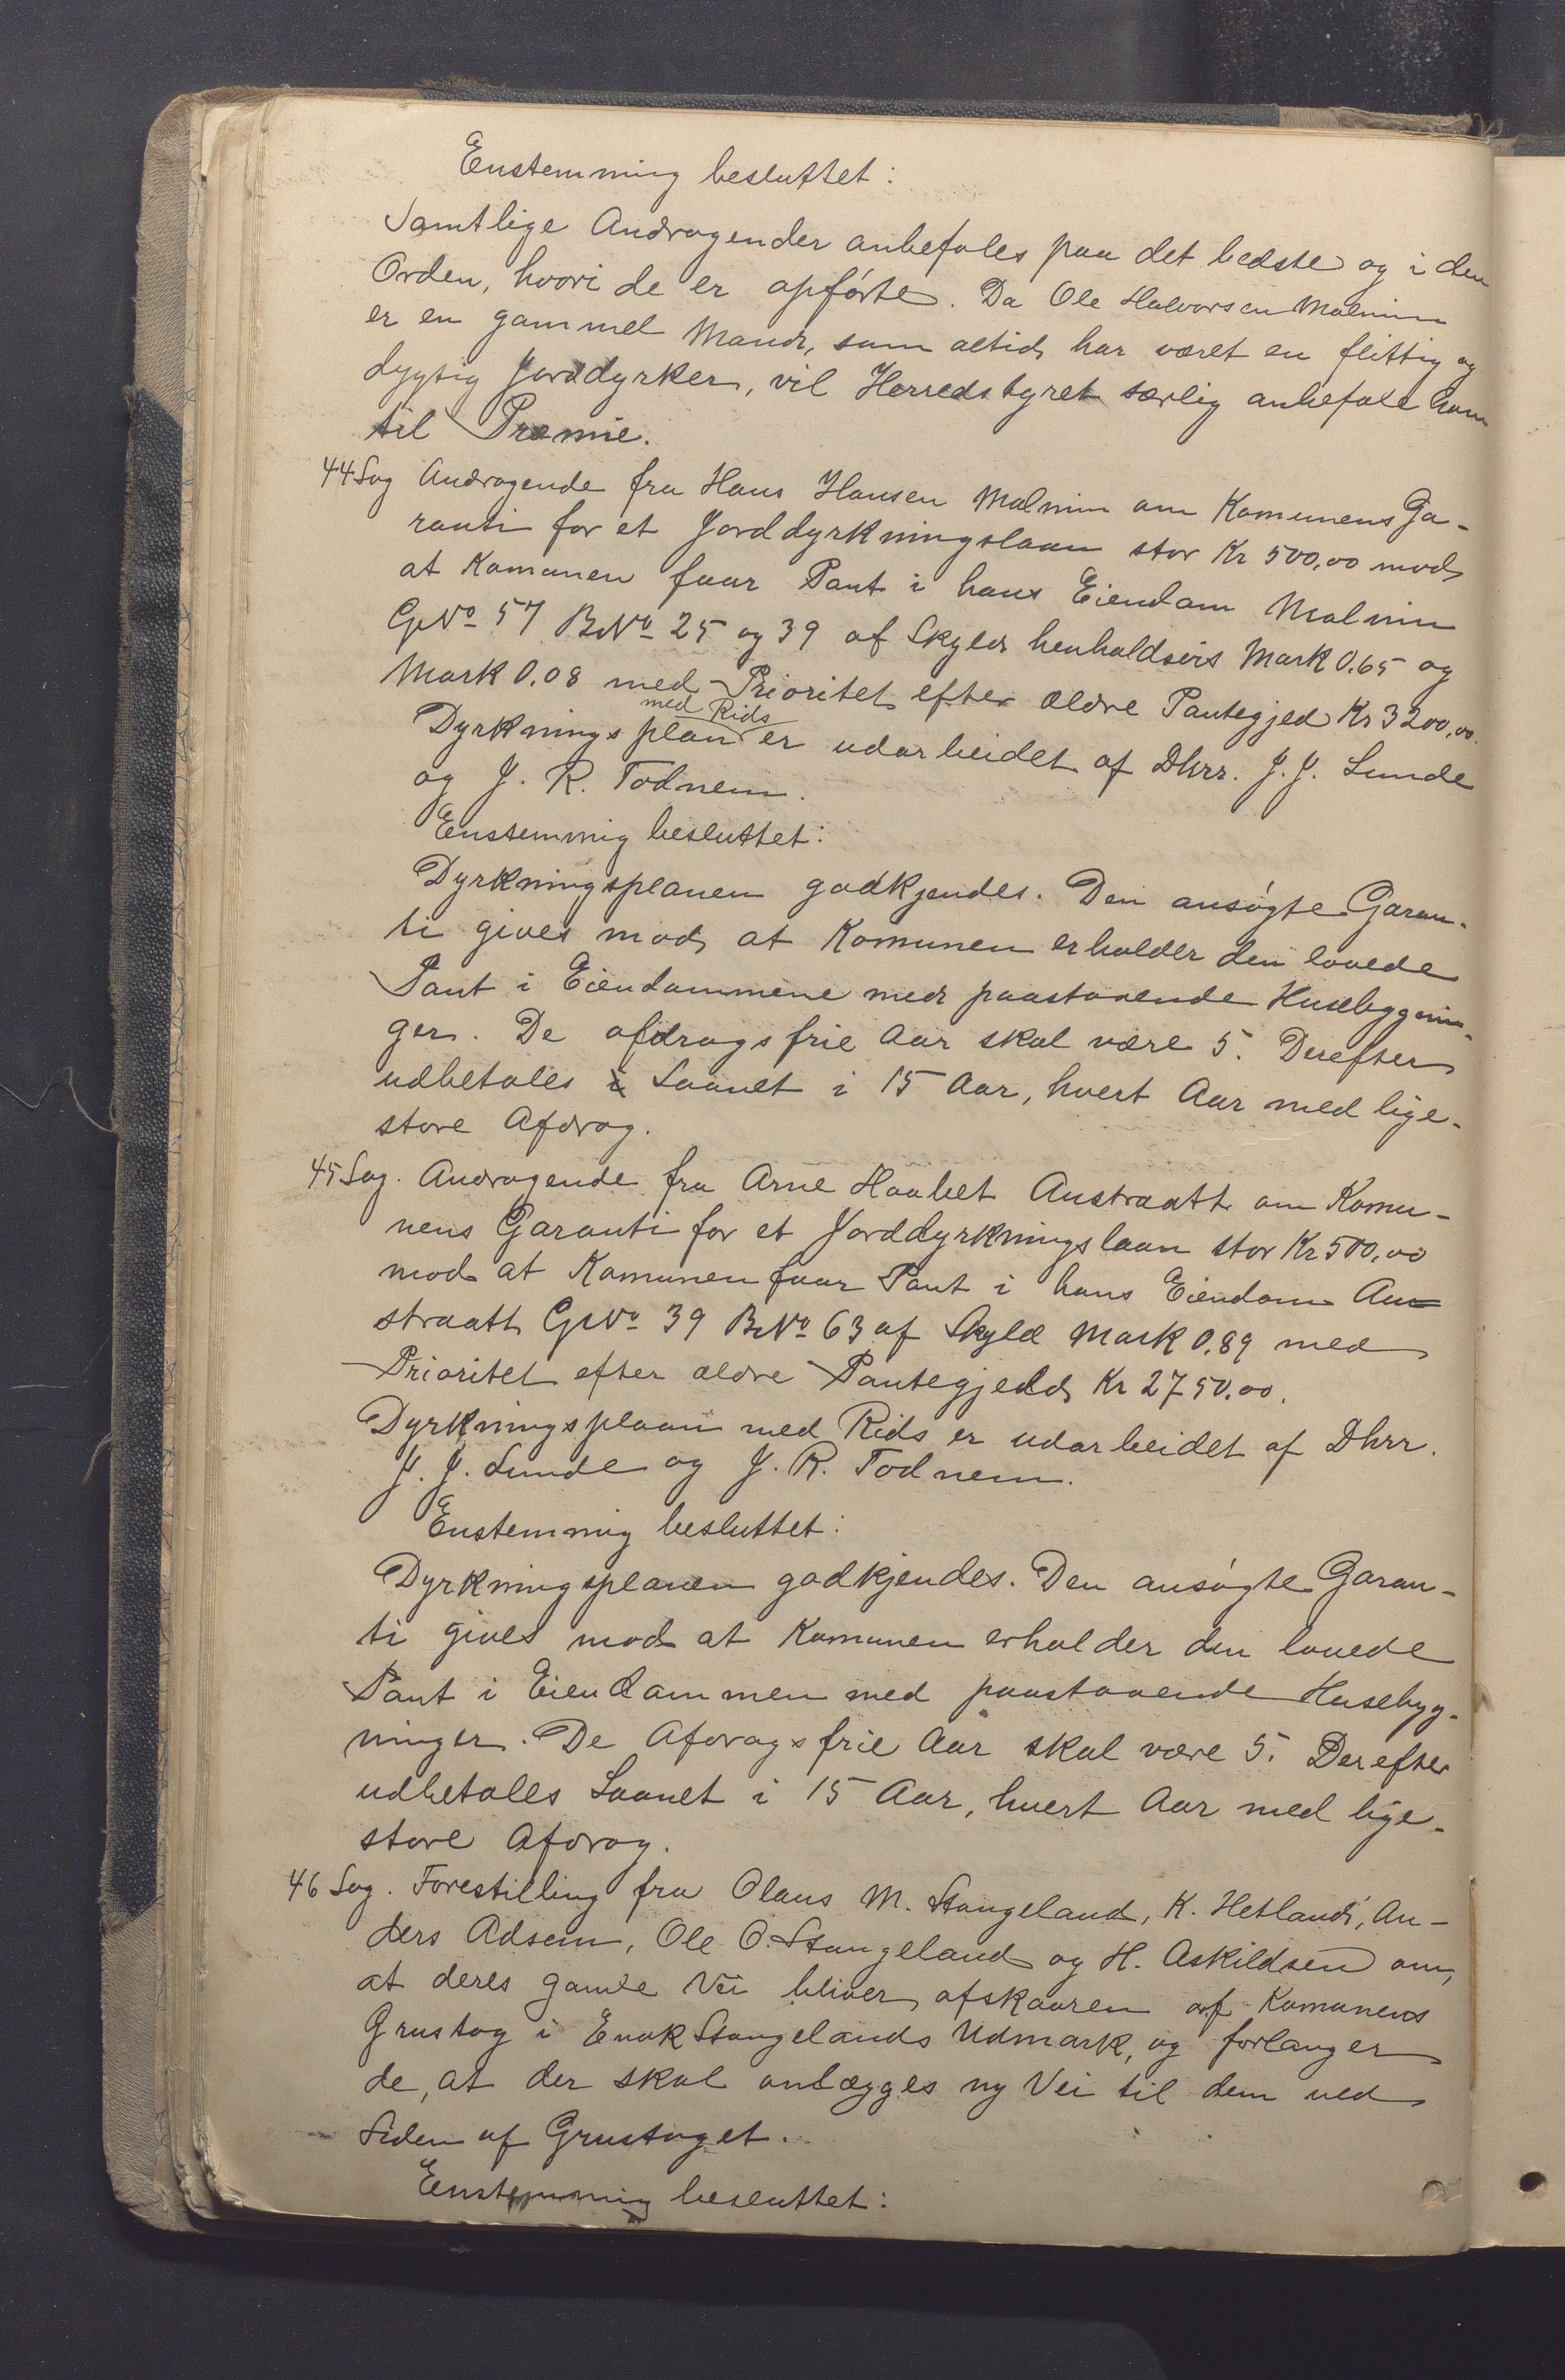 Enstemmig besluttet:
Samtlige Andragender anbefales paa det bedste og i den
Orden, hvori de er opførte. Da Ole Halvorsen Malmin
er en gammel Mand, som altid har været en flittig og
dygtig Jorddyrker, vil Herredstyret særlig anbefale ham
til Præmie.
44 Sag Andragende fra Hans Hansen Malmin om Komunens Ga-
ranti for et Jorddyrkningslaan stor Kr 500,00 mod
at Komunen faar Pant i hans Eiendom Malmin
GNo 57 BNo 25 og 39 af Skyld henholdsvis Mark 0.65 og
Mark 0.08 med Prioritet efter ældre Pantegjed Kr 3200,00.
med Rids
Dyrkningsplan er udarbeidet af Dhrr. J. J. Lunde
og J. R. Todnem.
Enstemmig besluttet:
Dyrkningsplanen godkjendes. Den ansøgte Garan-
ti gives mod at Komunen erholder den lovede
Pant i Eiendommene med paastaaende Husebygnin-
ger. De afdragsfrie Aar skal være 5. Derefter
udbetales i Laanet i 15 Aar, hvert Aar med lige-
store Afdrag.
45 Sag. Andragende fra Arne Haabet Austraatt om Komu-
nens Garanti for et Jorddyrkningslaan stor Kr 500,00
mod at Komunen faar Pant i hans Eiendom Au=
straatt GNo 39 BNo 63 af Skyld Mark 0,89 med
Prioritet efter ældre Pantegjeld Kr 2750,00.
Dyrkningsplaan med Rids er udarbeidet af Dhrr.
J. J. Lunde og J. R. Todnem.
Enstemmig besluttet:
Dyrkningsplanen godkjendes. Den ansøgte Garan-
ti gives mod at Komunen erholder den lovede
Pant i Eiendommen med paastaaende Husebyg-
ninger. De Afdragsfrie Aar skal være 5. Derefter
udbetales Laanet i 15 Aar, hvert Aar med lige-
store Afdrag.
46 Sag. Forestilling fra Olaus M. Stangeland, K. Hetland, An-
ders Adsem, Ole O. Stangeland og H. Askildsen om,
at deres gamle Vei bliver afskaaren af Komunens
Grustag i Enok Stangelands Udmark, og forlanger
de, at der skal anlægges ny Vei til dem ved
Siden af Grustaget.
Enstemmig besluttet: